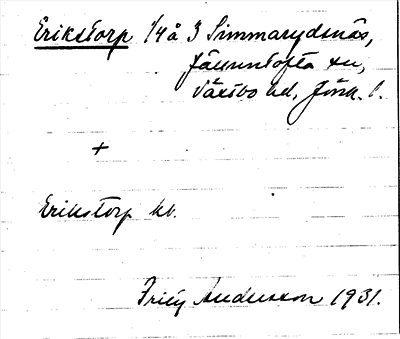 Erikstorp 1/4 å 3 Simmarydsnäs,
Jälluntofta sn,
Västbo hd, Jönk. l.
+
Erikstorp kv.
Frity Andersson 1931.